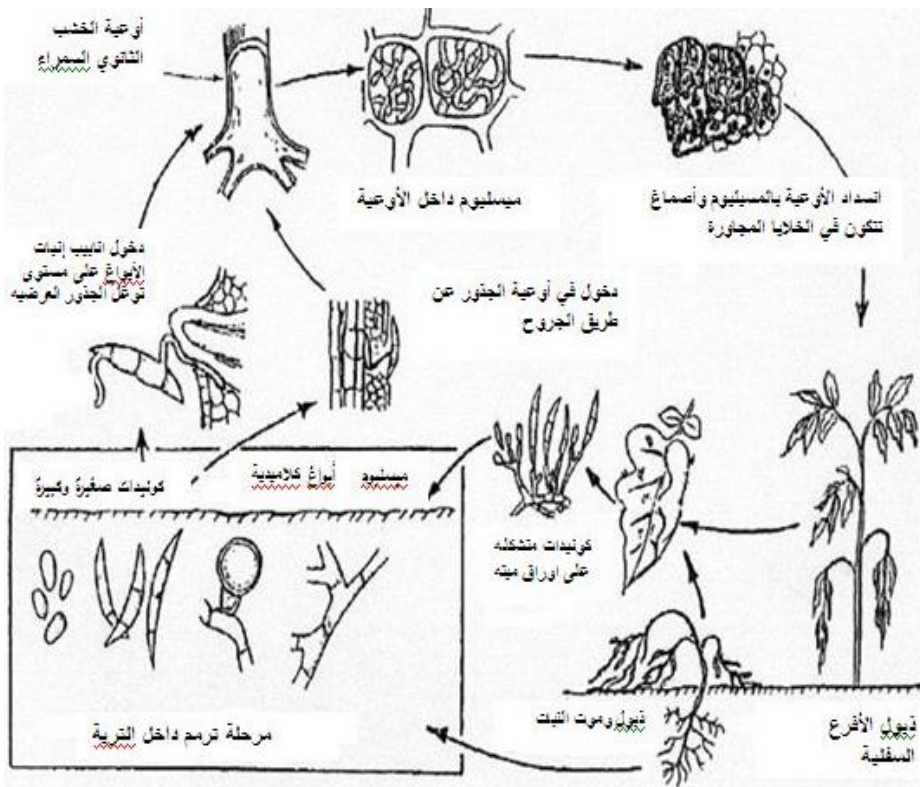 أوعية الخشب
الثانوي السمراء
ميسليوم داخل الأوعية
انسداد الأوعية بالمسيليوم وأصماغ
تتكون في الخلايا المجاورة
دخول انابيب إنبات
الأبواغ على مستوى
توغل الجذور العرضيه
دخول في أوعية الجذور عن
طريق الجروح
كونيدات صغيرة وكبيرة
أبواغ كلاميدية
ميسليوم
كونيدات متشكله
على اوراق ميته
مرحلة ترمم داخل التربة
ذبول وموت النبات
ذبول الأفرع
السفلية